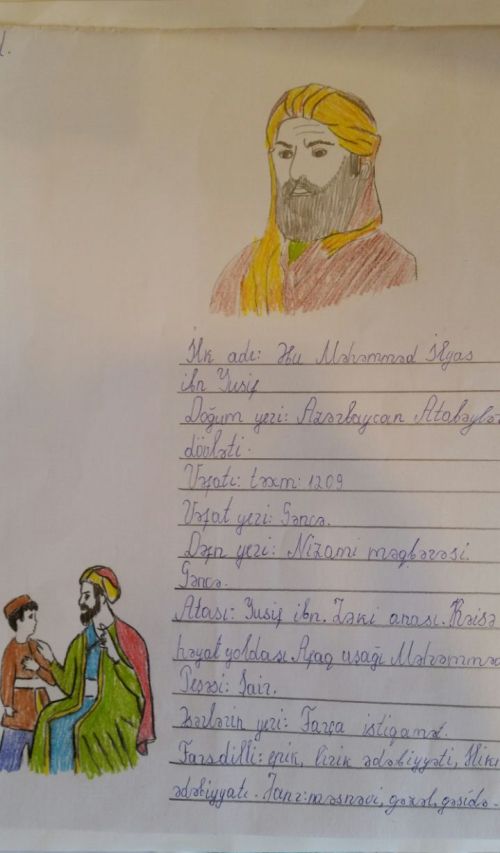 İlk adı: Əbu Məhəmməd İlyas
ibn Yusif
Doğum yeri: Azərbaycan Atabəylə
dövləti.
Vəfatı: təxm: 1209
Vəfat yeri: Gəncə.
Dəfn yeri: Nizami məqbərəsi.
Gəncə.
Atası: Yusif ibn. Zəki anası. Rəisə
həyat yoldası. Afaq usağı Məhəmməd
Peşəsi: Şair.
Əsərlərin yeri: Farsa istiqamət.
Farsdilli: epik, lirik ədəbiyyəti, Hikm
ədəbiyyatı. Janr: məsnəvi, qəzəl, qəsidə.